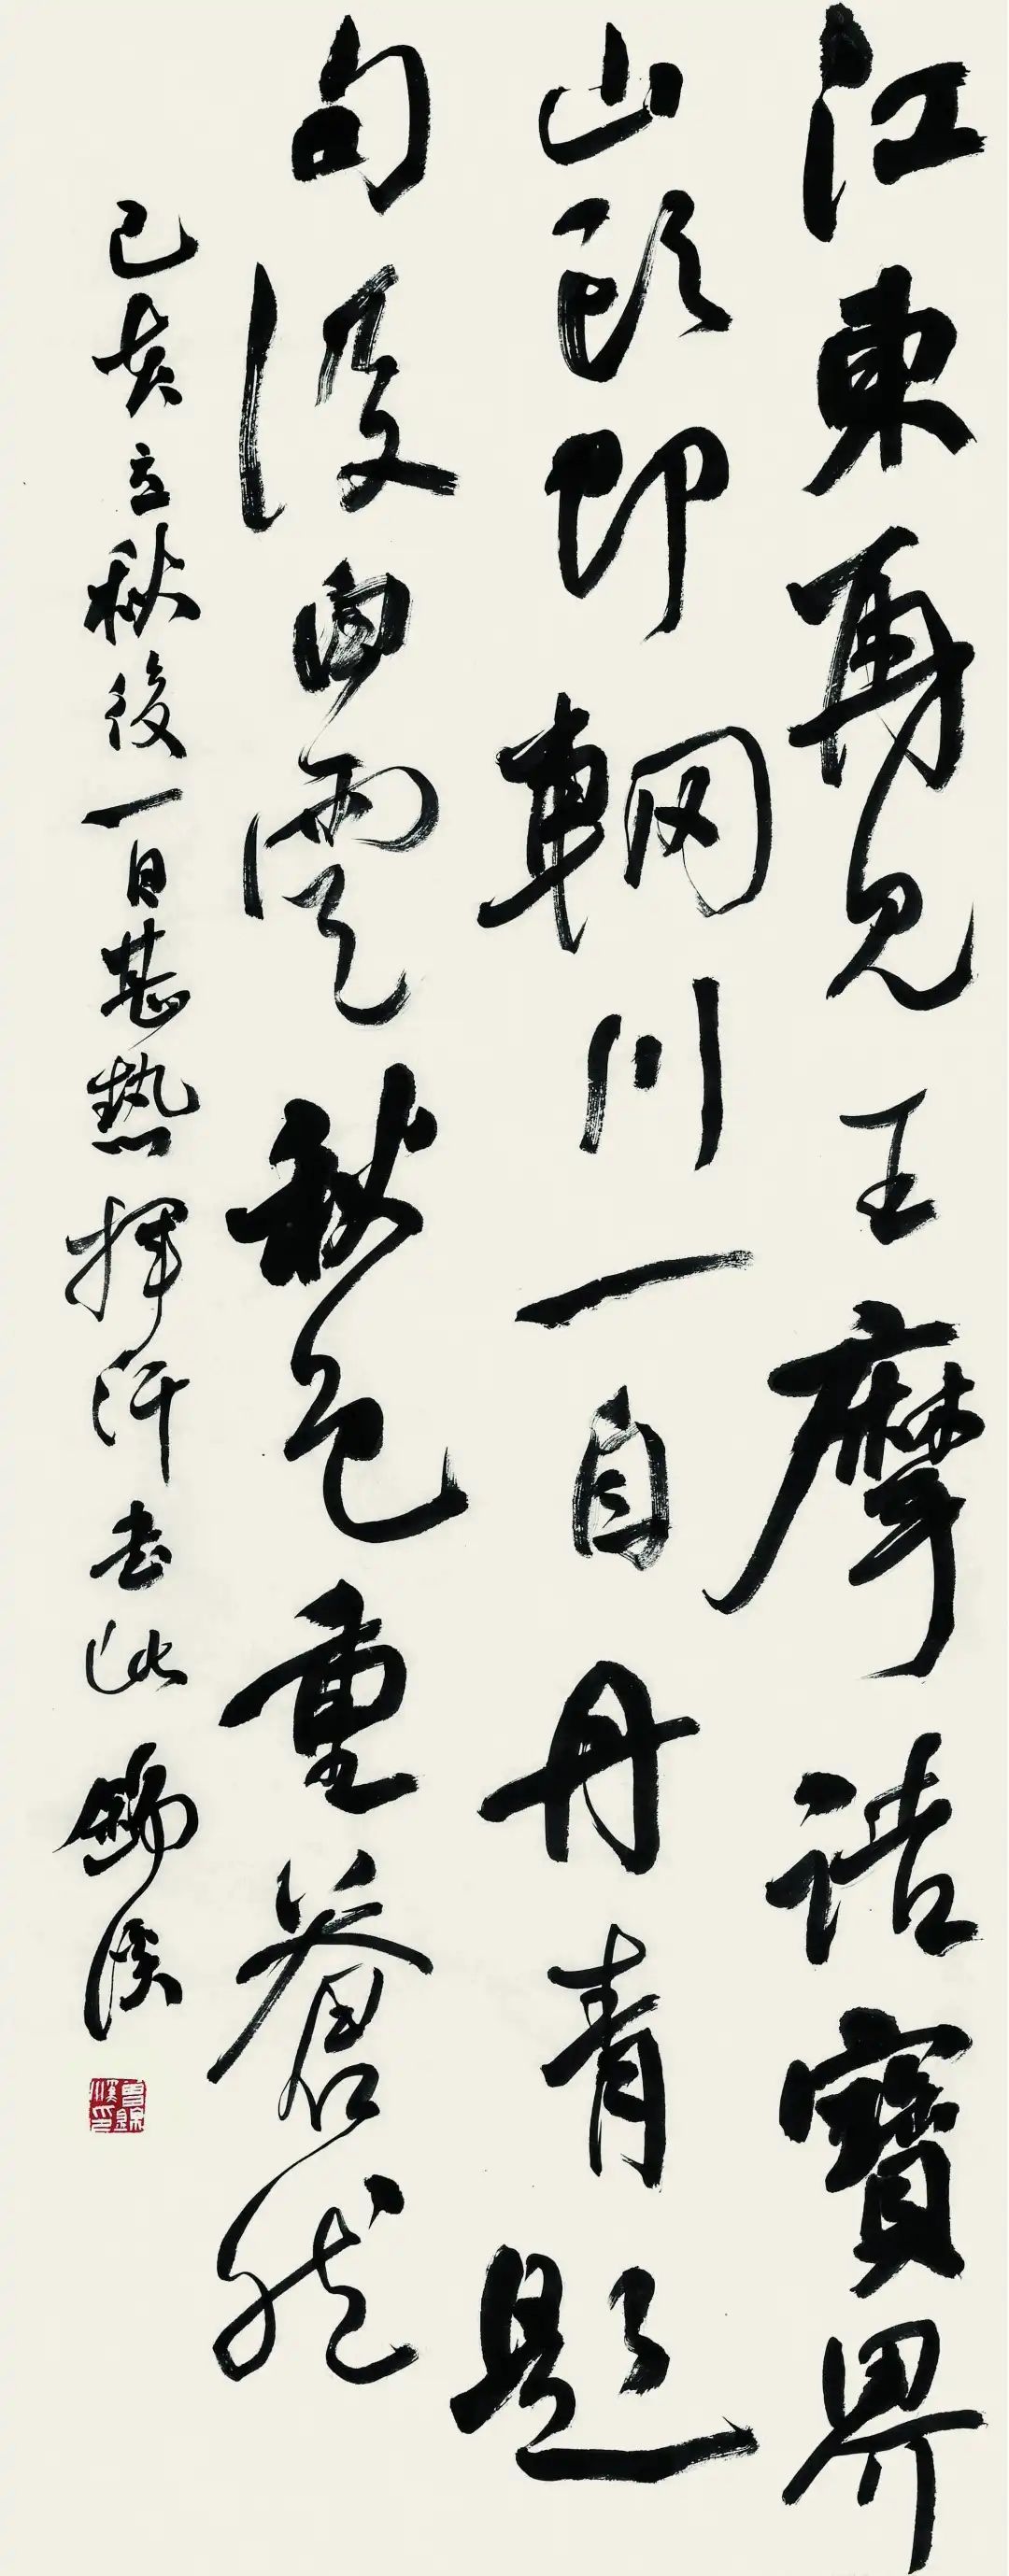 江東再見王摩詰寶界
山頭即輞川一自丹青題
句後白雲秋色重蒼然
己亥立秋後一日甚熱揮汗書此錫漢